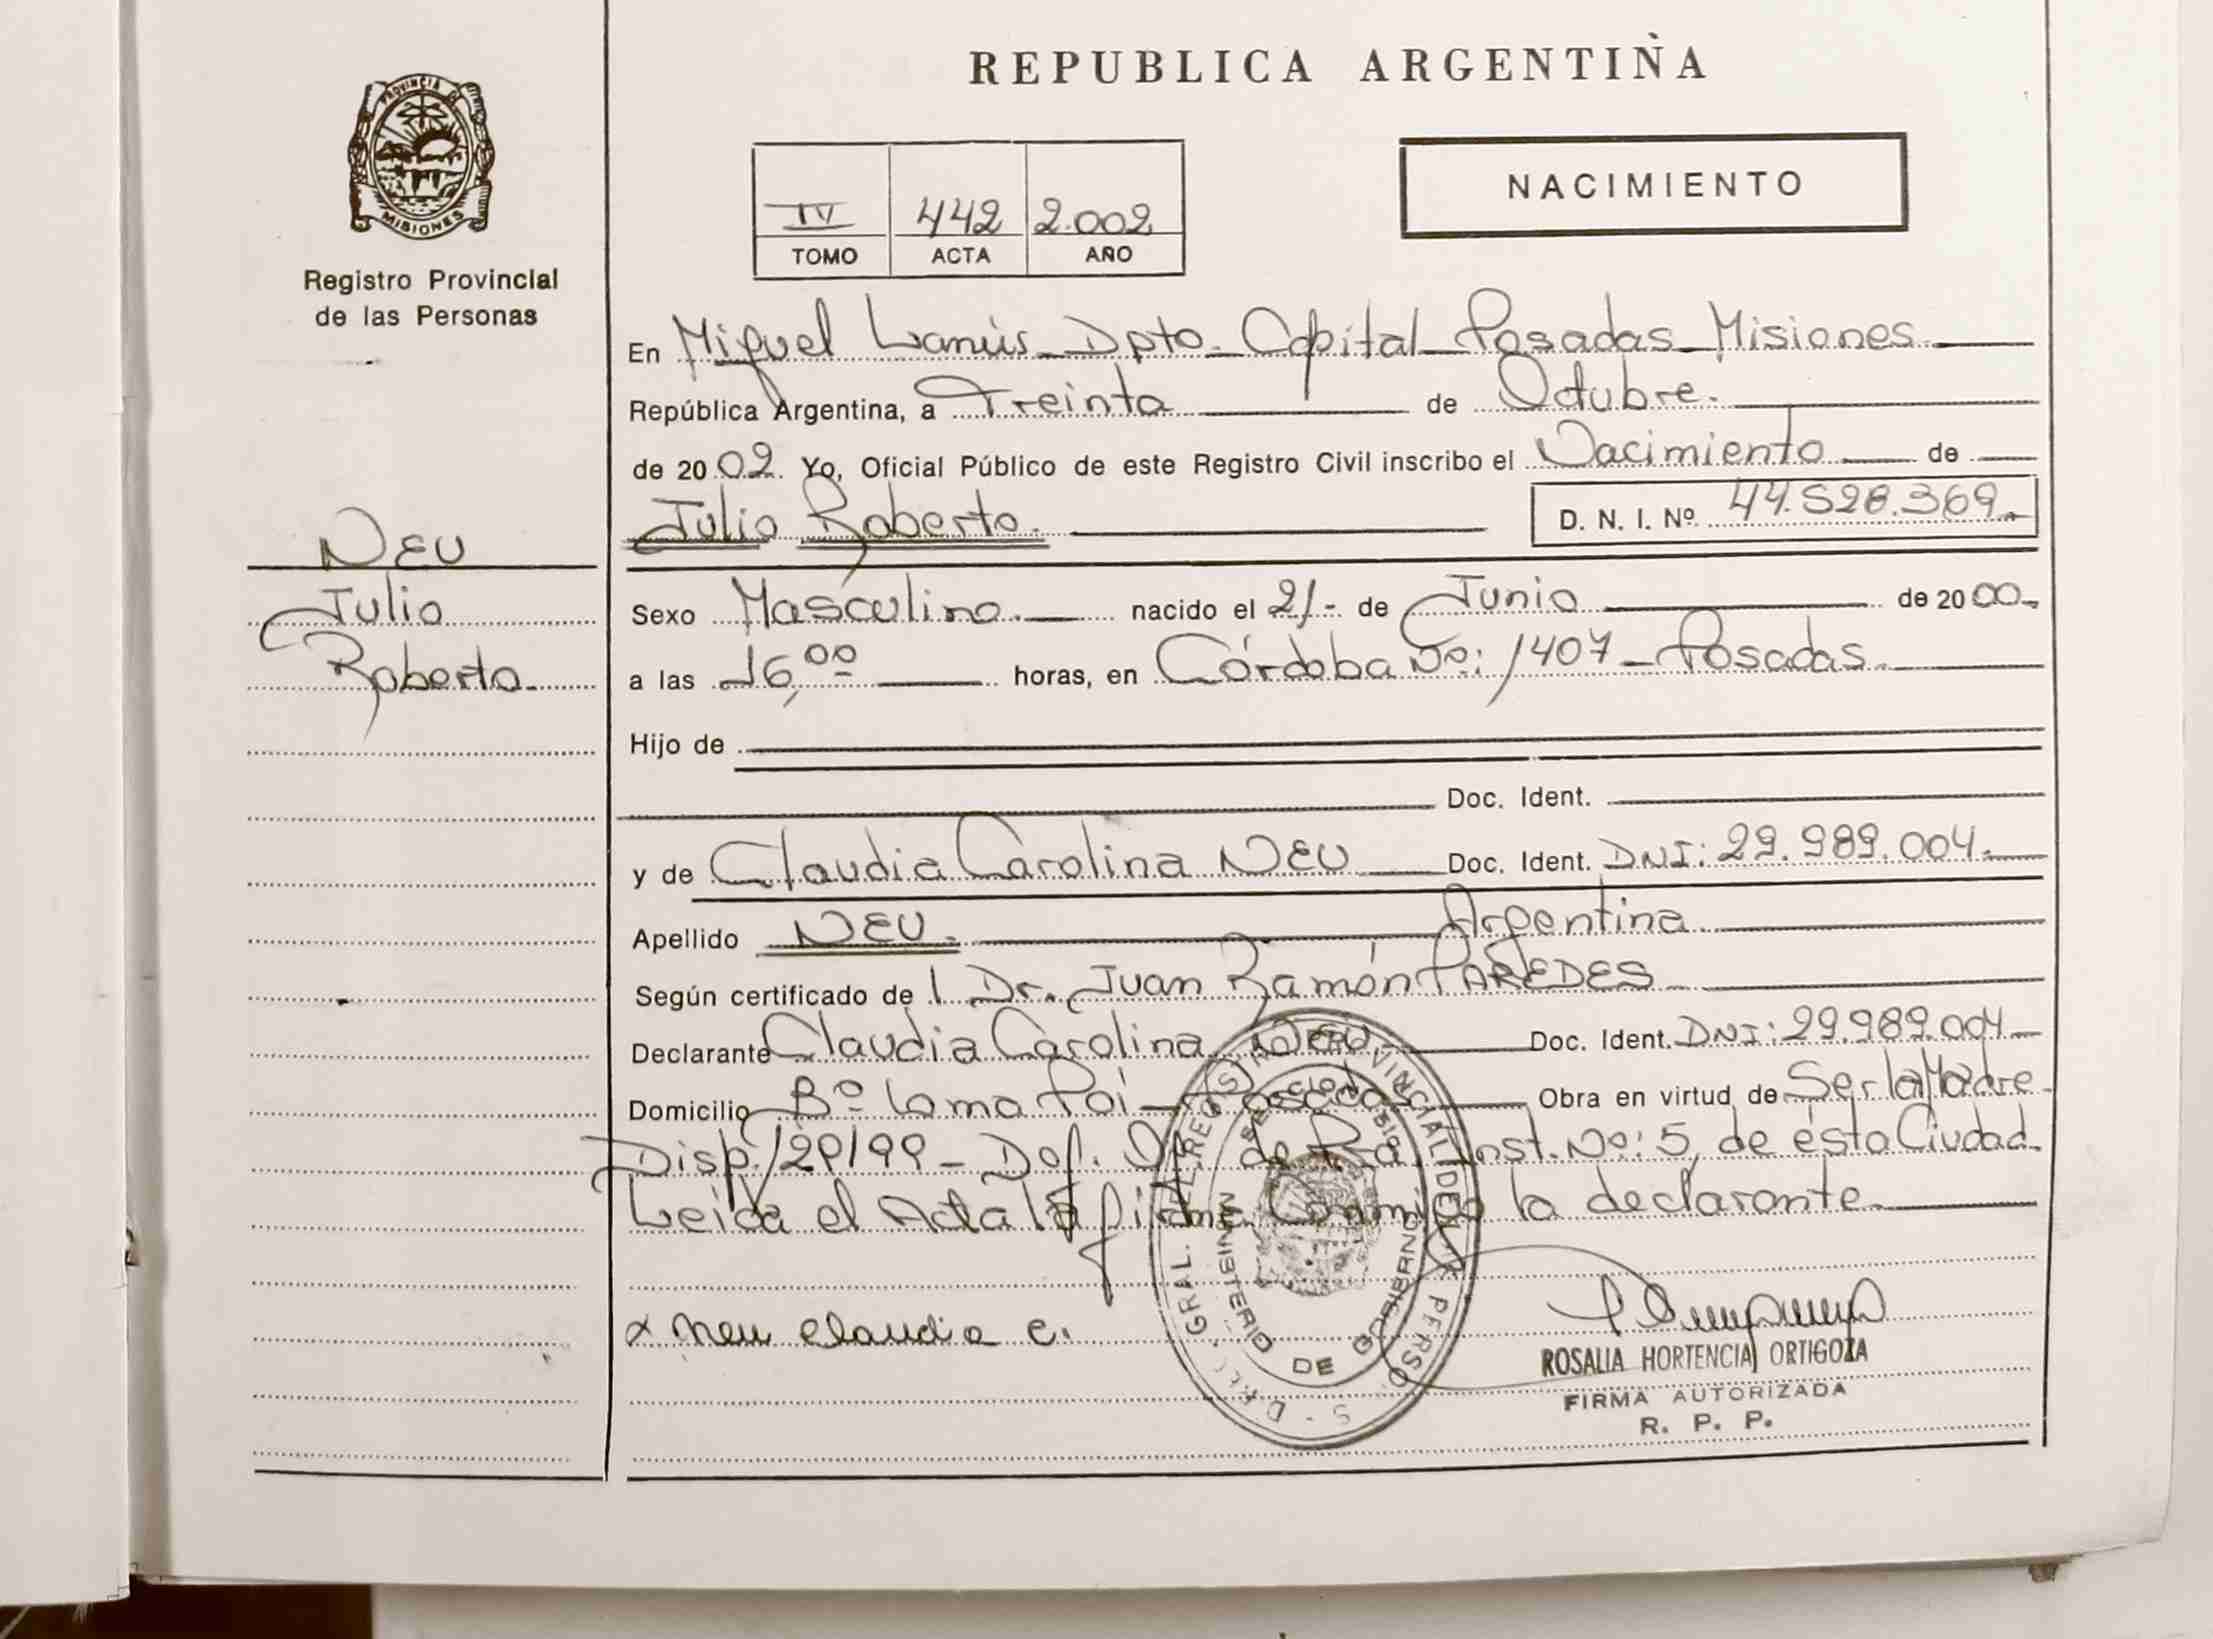 REPUBLICA ARGENTIÑA
PROVINCIA DE
MISIONES
Registro Provincial
de las Personas
IV 442 2.002
TOMO ACTA AÑO
NACIMIENTO
En Miguel Lanús Dpto. Capital Posadas Misiones.
República Argentina, a Treinta de Octubre.
de 2002. Yo, Oficial Público de este Registro Civil inscribo el Nacimiento de
Julio Roberto. D. N. I. Nº 44.528.369.
NEU
Julio
Roberto.
Sexo Masculino. nacido el 21- de Junio de 2000.
a las 16,00 horas, en Córdoba Nº: 1407 - Posadas.
Hijo de
Doc. Ident.
y de Claudia Carolina NEU Doc. Ident. DNI: 29.989.004.
Apellido NEU. Argentina
Según certificado de Dr. Juan Ramón PAREDES
Declarante Claudia Carolina NEU. Doc. Ident. DNI: 29.989.004
Domicilio Bº Loma Poi - Posadas Obra en virtud de Ser la Madre.
Disp. 120/99 - Def. Of. de Pra. Inst. Nº: 5, de ésta Ciudad.
Leida el Acta la firma Conmigo la declarante.
x Neu Claudia C.
MINISTERIO DE GOBIERNO
ROSALIA HORTENCIA ORTIGOZA
FIRMA AUTORIZADA
R. P. P.